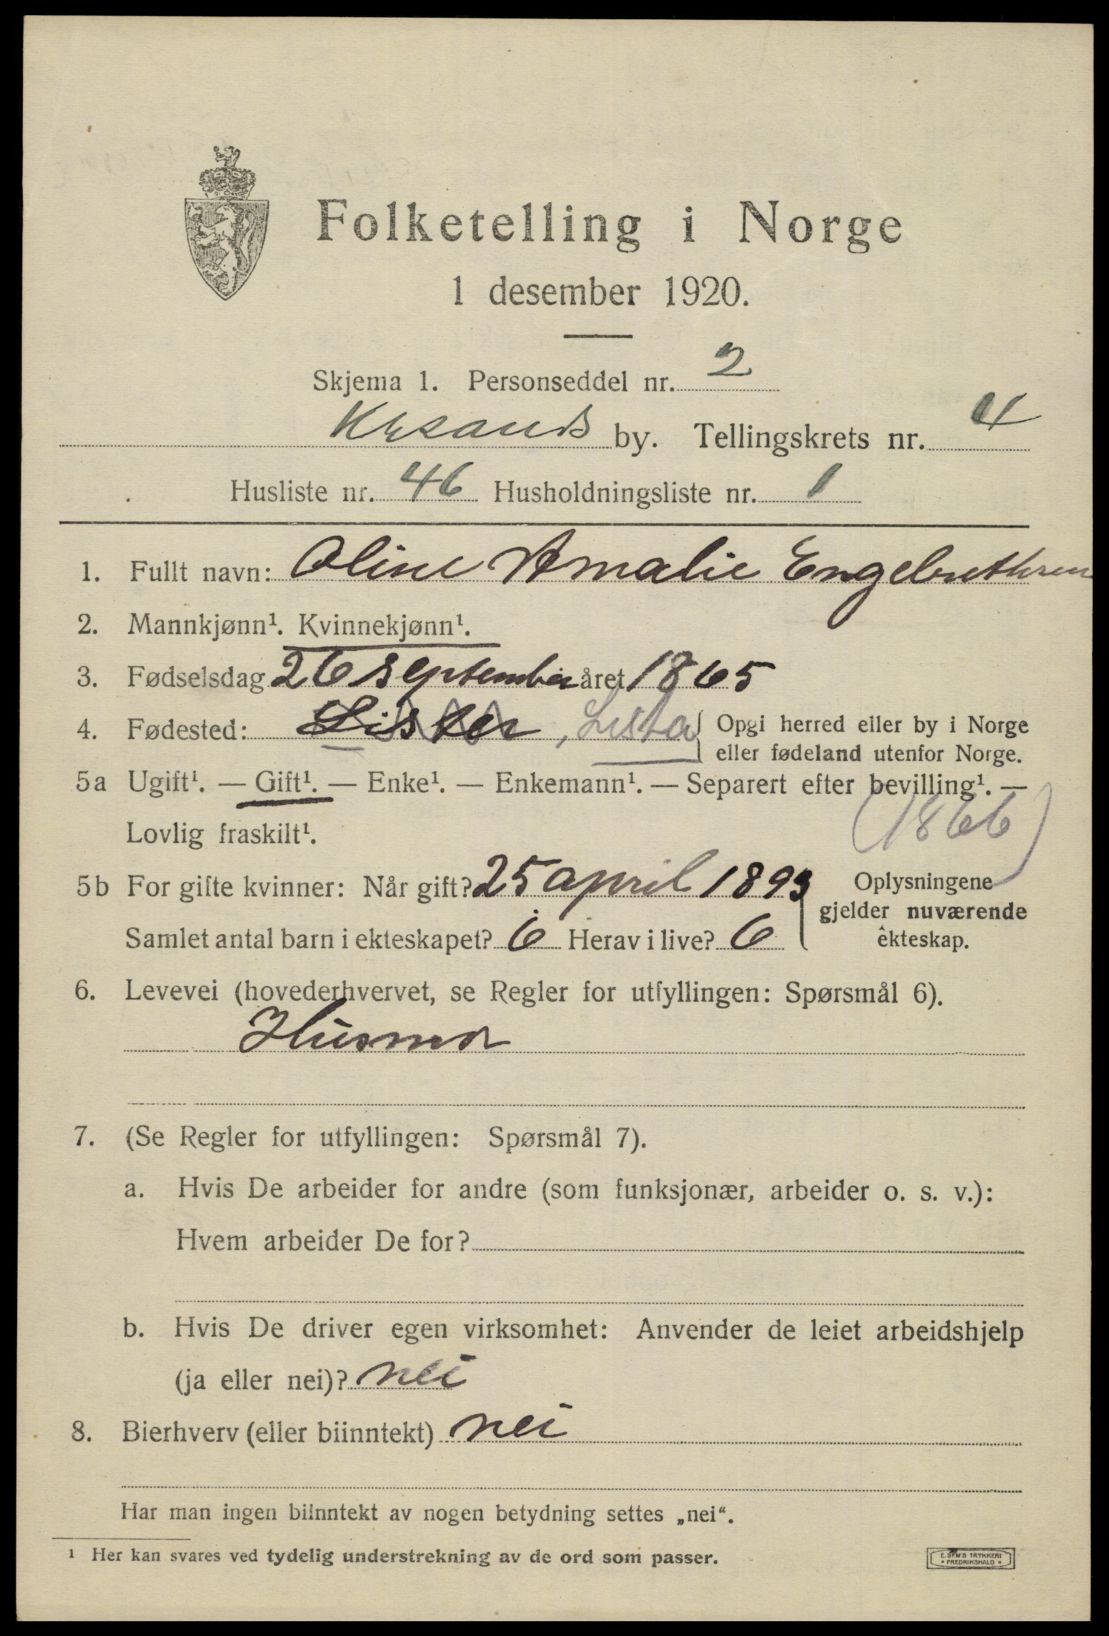 Folketelling i Norge
1 desember 1920.
Skjema 1. Personseddel nr. 2
Krsands by. Tellingskrets nr. 4
Husliste nr. 46 Husholdningsliste nr. 1
1. Fullt navn: Oline Amalie Engebrethsen
2. Mannkjønn¹. Kvinnekjønn¹.
3. Fødselsdag 26 september året 1865
4. Fødested: Lister, Lista
Opgi herred eller by i Norge
eller fødeland utenfor Norge.
5a Ugift¹. — Gift¹. — Enke¹. — Enkemann¹. — Separert efter bevilling¹. —
Lovlig fraskilt¹.
(1866)
5b For gifte kvinner: Når gift? 25 april 1893
Samlet antal barn i ekteskapet? 6 Herav i live? 6
Oplysningene
gjelder nuværende
ekteskap.
6. Levevei (hovederhvervet, se Regler for utfyllingen: Spørsmål 6).
Husmor
7. (Se Regler for utfyllingen: Spørsmål 7).
a. Hvis De arbeider for andre (som funksjonær, arbeider o. s. v.):
Hvem arbeider De for?
b. Hvis De driver egen virksomhet: Anvender de leiet arbeidshjelp
(ja eller nei)? nei
8. Bierhverv (eller biinntekt) nei
Har man ingen biinntekt av nogen betydning settes „nei“.
¹ Her kan svares ved tydelig understrekning av de ord som passer.
E. SEM'S TRYKKERI
• FREDRIKSHALD •